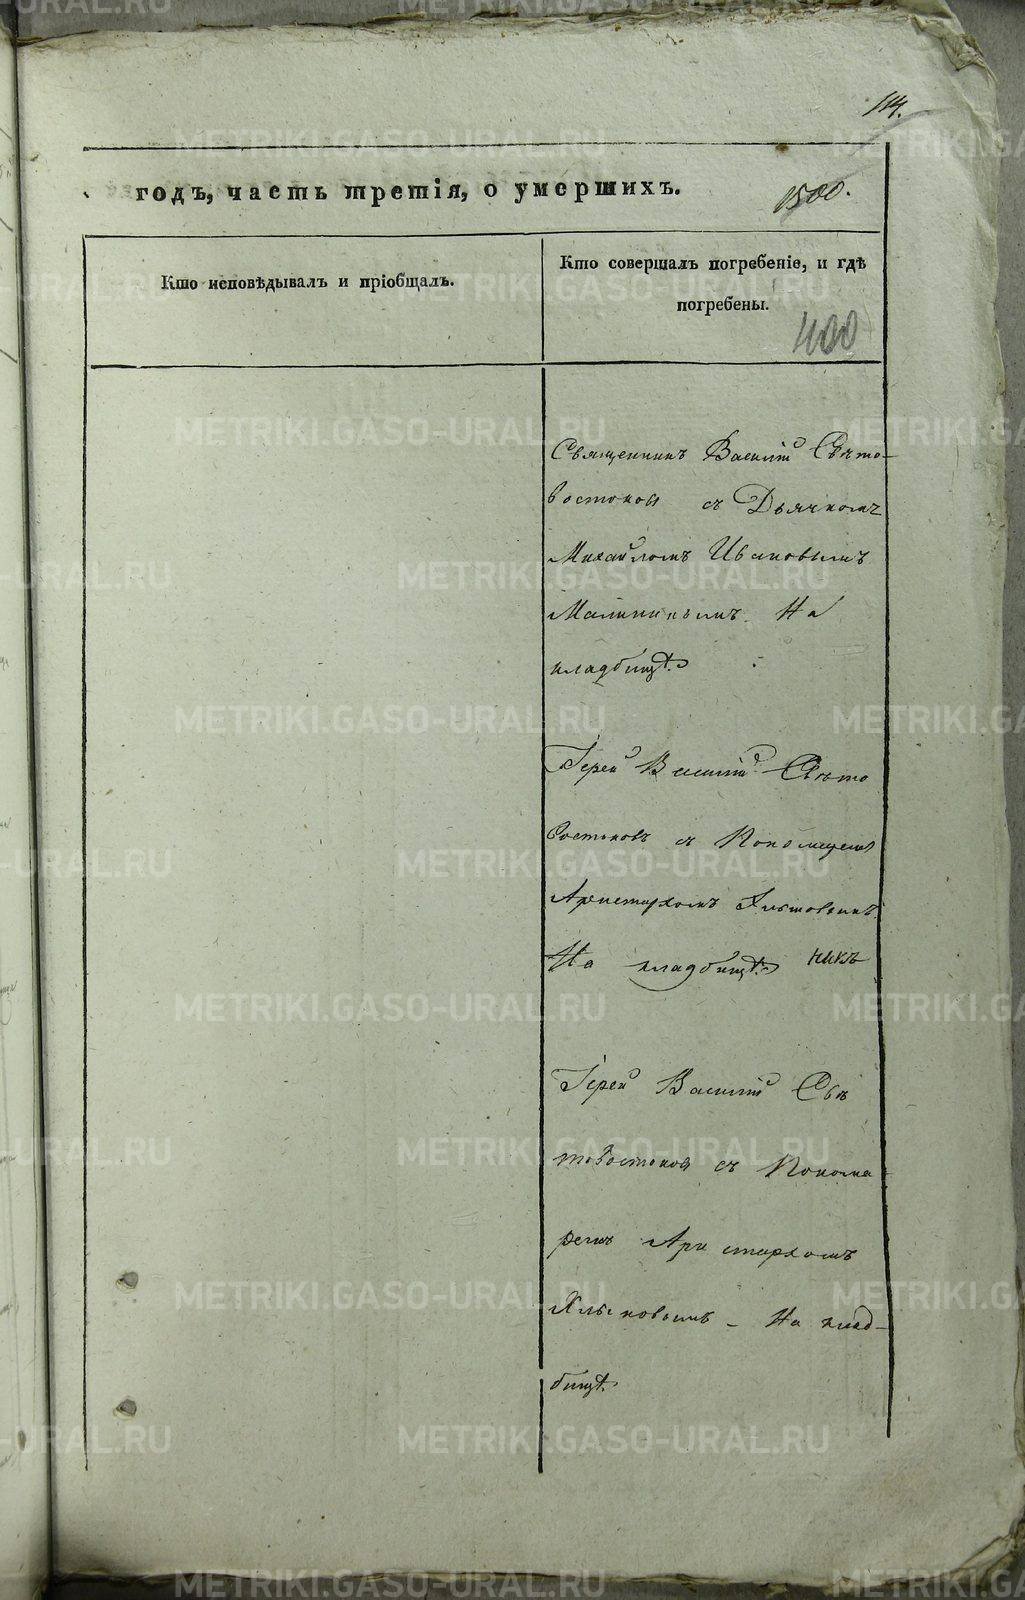 114.
годъ, часть третія, о умершихъ.
1500.
Кто исповѣдывалъ и пріобщалъ.
Кто совершалъ погребеніе, и гдѣ
погребены.
400
Священникъ Василій Свѣто-
востоковъ съ Дьячкомъ
Михайломъ Ивановымъ
Малининымъ. На
кладбищѣ.
Іерей Василій Свѣто
востоковъ съ Пономаремъ
Аристархомъ
На кладбищѣ.
Іерей Василій Свѣ
товостоковъ съ Понома
ремъ Аристархомъ
Хлыновымъ – На клад-
бищѣ.
METRIKI.GASO-URAL.RU